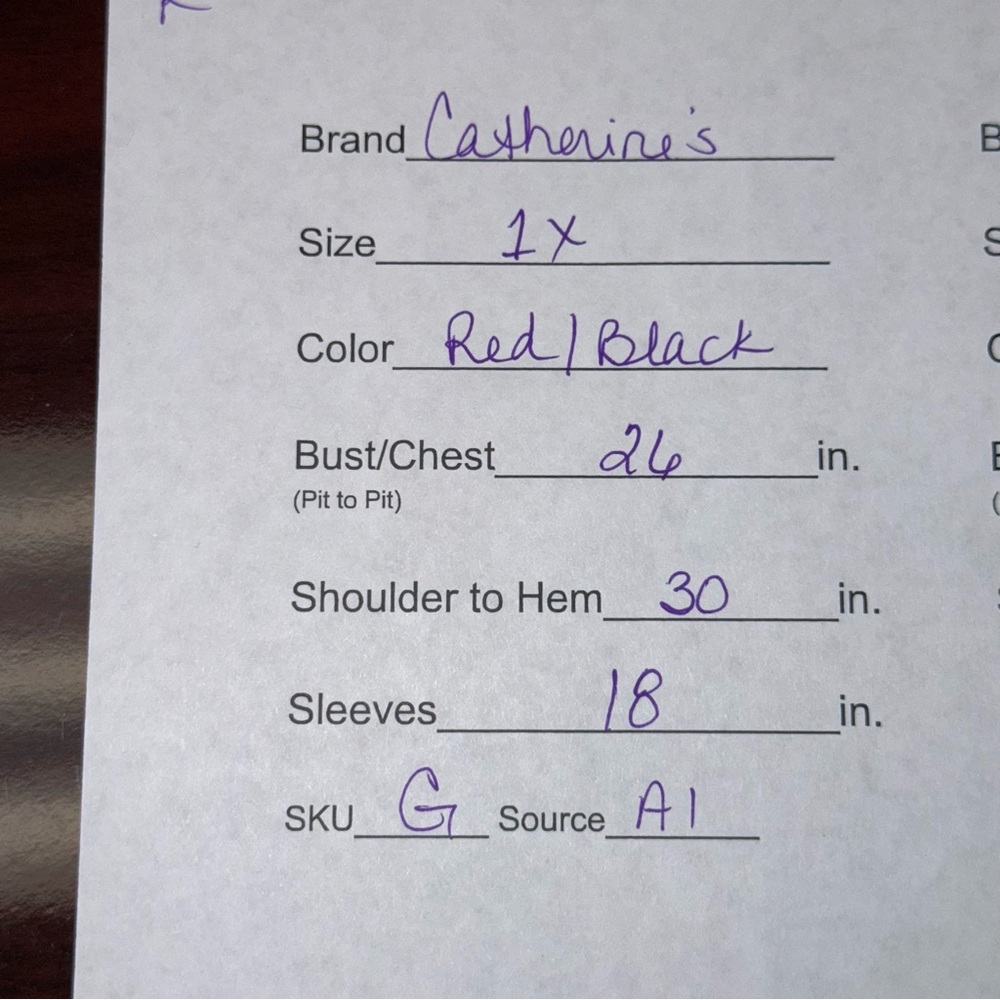 Brand Catherine's
Size 1X
Color Red/Black
Bust/Chest 26 in.
(Pit to Pit)
Shoulder to Hem 30 in.
Sleeves 18 in.
SKU G Source A1